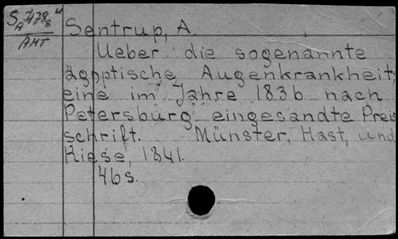 Sentrup, A.
Ueber die sogenannte
ägyptische Augenkrankheit;
eine im Jahre 1836 nach
Petersburg eingesandte Preis
schrift. Münster, Hast, und
Riese, 1841.
46s.